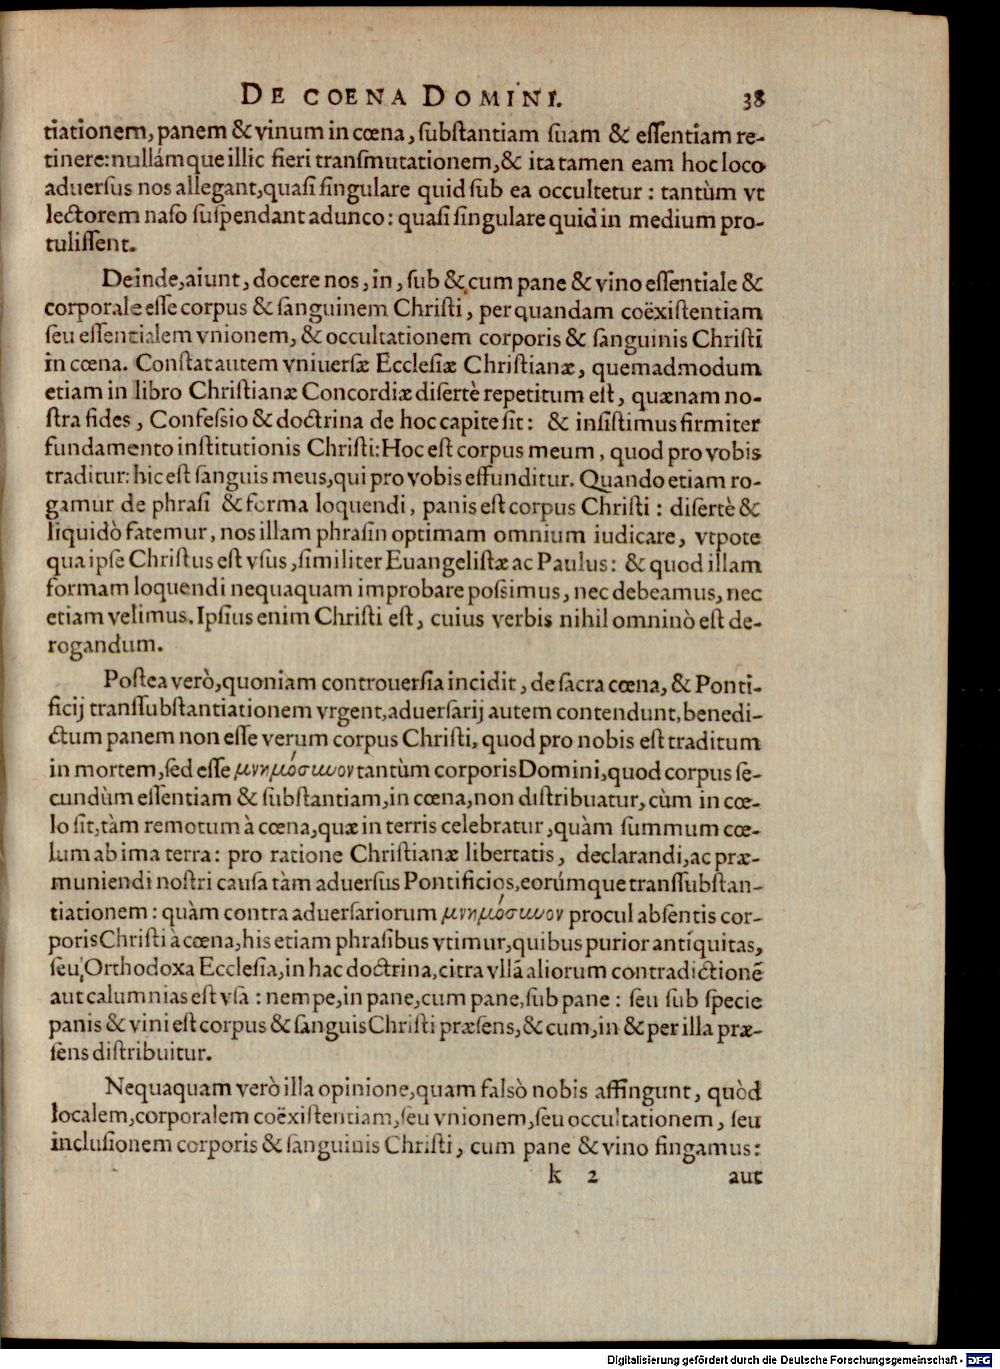 DE COENA DOMINI. 38
tiationem, panem & vinum in cœna, ſubſtantiam ſuam & eſſentiam re-
tinere: nullámque illic fieri tranſmutationem, & ita tamen eam hoc loco
aduerſus nos allegant, quaſi ſingulare quid ſub ea occultetur: tantùm vt
lectorem naſo ſuſpendant adunco: quaſi ſingulare quid in medium pro-
tuliſſent.
Deinde, aiunt, docere nos, in, ſub & cum pane & vino eſſentiale &
corporale eſſe corpus & ſanguinem Chriſti, per quandam coëxiſtentiam
ſeu eſſentialem vnionem, & occultationem corporis & ſanguinis Chriſti
in cœna. Conſtat autem vniuerſæ Eccleſiæ Chriſtianæ, quemadmodum
etiam in libro Chriſtianæ Concordiæ diſertè repetitum eſt, quænam no-
ſtra fides, Confeſsio & doctrina de hoc capite ſit: & inſiſtimus firmiter
fundamento inſtitutionis Chriſti: Hoc eſt corpus meum, quod pro vobis
traditur: hic eſt ſanguis meus, qui pro vobis effunditur. Quando etiam ro-
gamur de phraſi & forma loquendi, panis eſt corpus Chriſti: diſertè &
liquidò fatemur, nos illam phraſin optimam omnium iudicare, vtpote
qua ipſe Chriſtus eſt vſus, ſimiliter Euangeliſtæ ac Paulus: & quod illam
formam loquendi nequaquam improbare poſsimus, nec debeamus, nec
etiam velimus. Ipſius enim Chriſti eſt, cuius verbis nihil omninò eſt de-
rogandum.
Poſtea verò, quoniam controuerſia incidit, de ſacra cœna, & Ponti-
ficij tranſſubſtantiationem vrgent, aduerſarij autem contendunt, benedi-
ctum panem non eſſe verum corpus Chriſti, quod pro nobis eſt traditum
in mortem, ſed eſſe μνημόσυνον tantùm corporis Domini, quod corpus ſe-
cundùm eſſentiam & ſubſtantiam, in cœna, non diſtribuatur, cùm in cœ-
lo ſit, tàm remotum à cœna, quæ in terris celebratur, quàm ſummum cœ-
lum ab ima terra: pro ratione Chriſtianæ libertatis, declarandi, ac præ-
muniendi noſtri cauſa tàm aduerſus Pontificios, eorúmque tranſſubſtan-
tiationem: quàm contra aduerſariorum μνημόσυνον procul abſentis cor-
poris Chriſti à cœna, his etiam phraſibus vtimur, quibus purior antiquitas,
ſeu Orthodoxa Eccleſia, in hac doctrina, citra vllā aliorum contradictionē
aut calumnias eſt vſa: nempe, in pane, cum pane, ſub pane: ſeu ſub ſpecie
panis & vini eſt corpus & ſanguis Chriſti præſens, & cum, in & per illa præ-
ſens diſtribuitur.
Nequaquam verò illa opinione, quam falsò nobis affingunt, quòd
localem, corporalem coëxiſtentiam, ſeu vnionem, ſeu occultationem, ſeu
incluſionem corporis & ſanguinis Chriſti, cum pane & vino fingamus:
k 2 aut
Digitalisierung gefördert durch die Deutsche Forschungsgemeinschaft - DFG